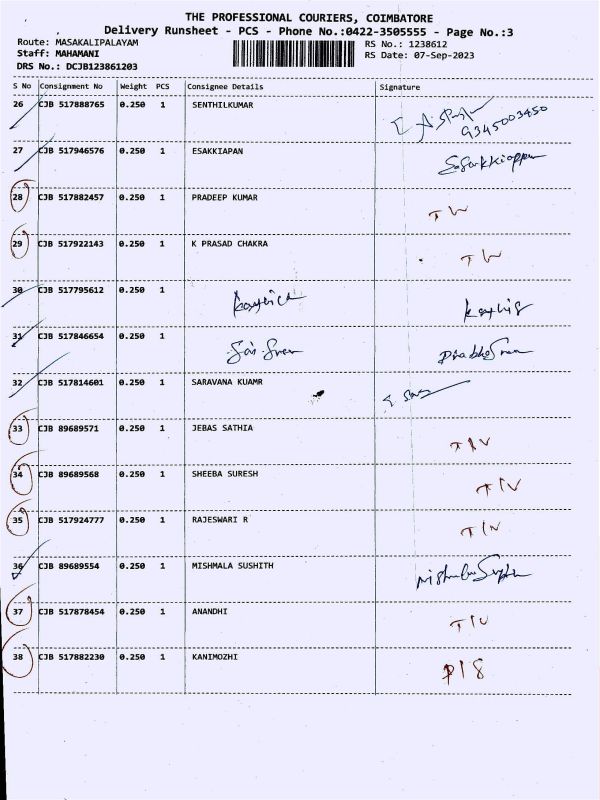 THE PROFESSIONAL COURIERS, COIMBATORE
Delivery Runsheet - PCS - Phone No.:0422-3505555 - Page No.:3
Route: MASAKALIPALAYAM RS No.: 1238612
Staff: MAHAMANI RS Date: 07-Sep-2023
DRS No.: DCJB123861203
S No Consignment No Weight PCS Consignee Details Signature
26 CJB 517888765 0.250 1 SENTHILKUMAR
9345003450
27 CJB 517946576 0.250 1 ESAKKIAPAN
28 CJB 517882457 0.250 1 PRADEEP KUMAR
29 CJB 517922143 0.250 1 K PRASAD CHAKRA
30 CJB 517795612 0.250 1
31 CJB 517846654 0.250 1
32 CJB 517814601 0.250 1 SARAVANA KUAMR
33 CJB 89689571 0.250 1 JEBAS SATHIA
34 CJB 89689568 0.250 1 SHEEBA SURESH
35 CJB 517924777 0.250 1 RAJESWARI R
36 CJB 89689554 0.250 1 MISHMALA SUSHITH
37 CJB 517878454 0.250 1 ANANDHI
38 CJB 517882230 0.250 1 KANIMOZHI